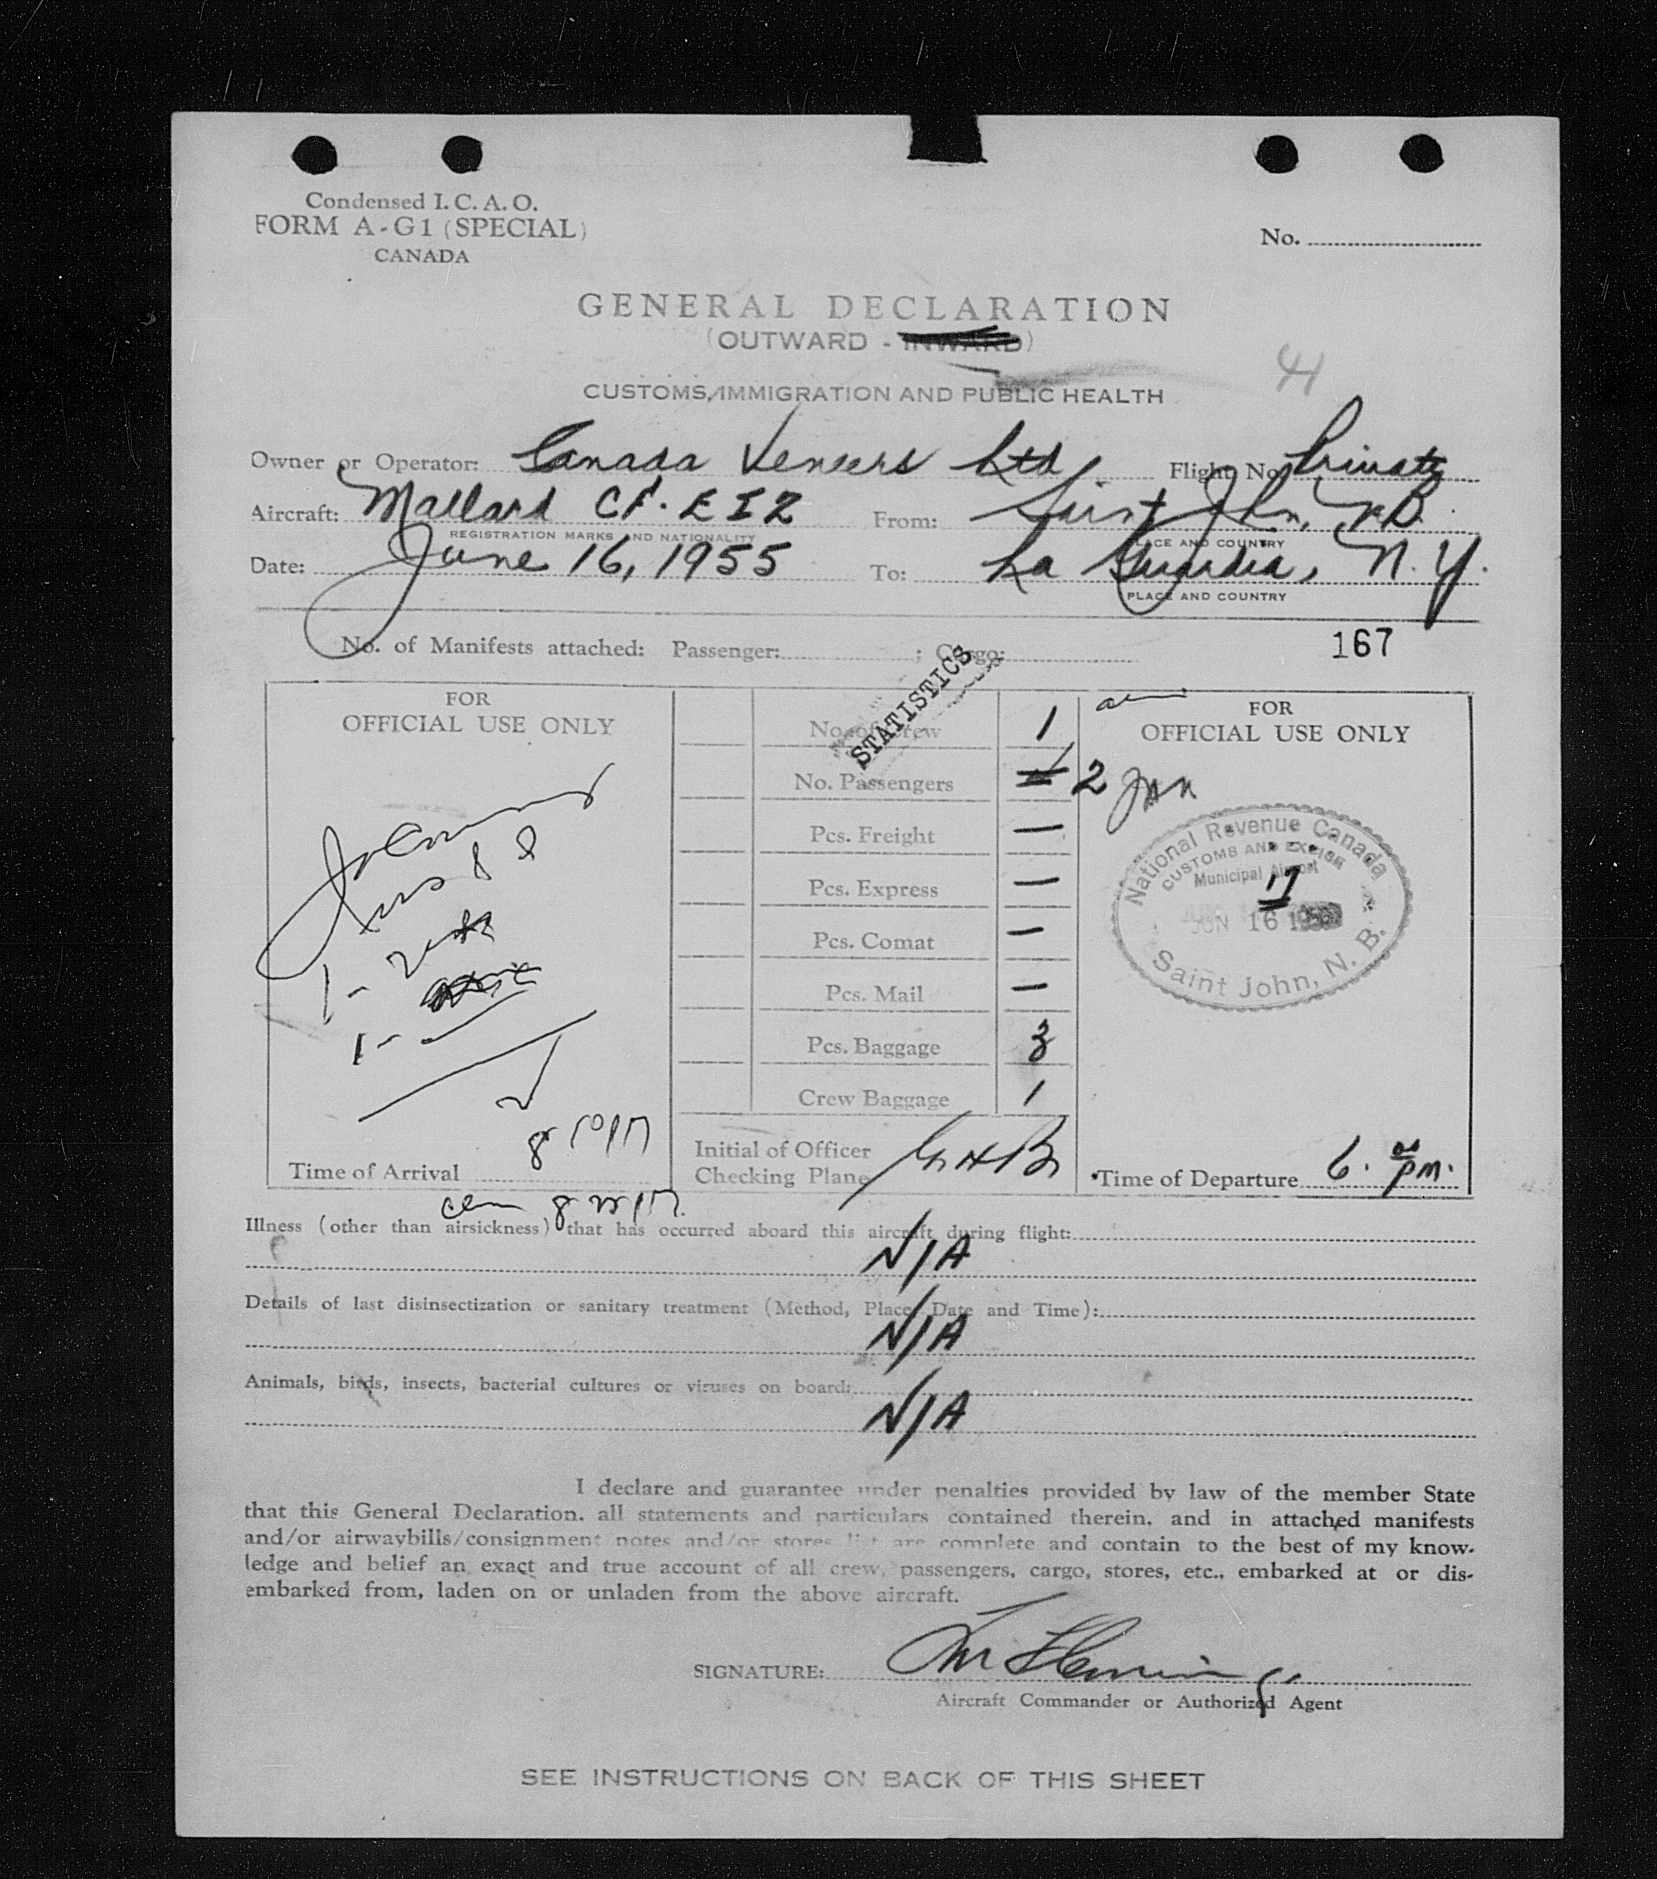 Condensed I. C. A. O.
FORM A-G1 (SPECIAL)
CANADA
No.
GENERAL DECLARATION
(OUTWARD - INWARD)
CUSTOMS, IMMIGRATION AND PUBLIC HEALTH
Owner or Operator: Canada Veneers Ltd Flight No. Private
Aircraft: Mallard CF-EIZ From: Saint John, N.B.
REGISTRATION MARKS AND NATIONALITY PLACE AND COUNTRY
Date: June 16, 1955 To: La Guardia, N.Y.
PLACE AND COUNTRY
No. of Manifests attached: Passenger: ; Cargo: 167
STATISTICS
FOR
OFFICIAL USE ONLY
Time of Arrival
No. of Crew 1
No. Passengers 2
Pcs. Freight —
Pcs. Express —
Pcs. Comat —
Pcs. Mail —
Pcs. Baggage 3
Crew Baggage 1
Initial of Officer
Checking Plane
FOR
OFFICIAL USE ONLY
National Revenue Canada
CUSTOMS AND EXCISE
Municipal Airport
JUN 16 1955
Saint John, N. B.
Time of Departure 6. pm.
Illness (other than airsickness) that has occurred aboard this aircraft during flight:
N/A
Details of last disinsectization or sanitary treatment (Method, Place, Date and Time):
N/A
Animals, birds, insects, bacterial cultures or viruses on board:
N/A
I declare and guarantee under penalties provided by law of the member State
that this General Declaration, all statements and particulars contained therein, and in attached manifests
and/or airwaybills/consignment notes and/or stores list are complete and contain to the best of my know-
ledge and belief an exact and true account of all crew, passengers, cargo, stores, etc., embarked at or dis-
embarked from, laden on or unladen from the above aircraft.
SIGNATURE:
Aircraft Commander or Authorized Agent
SEE INSTRUCTIONS ON BACK OF THIS SHEET